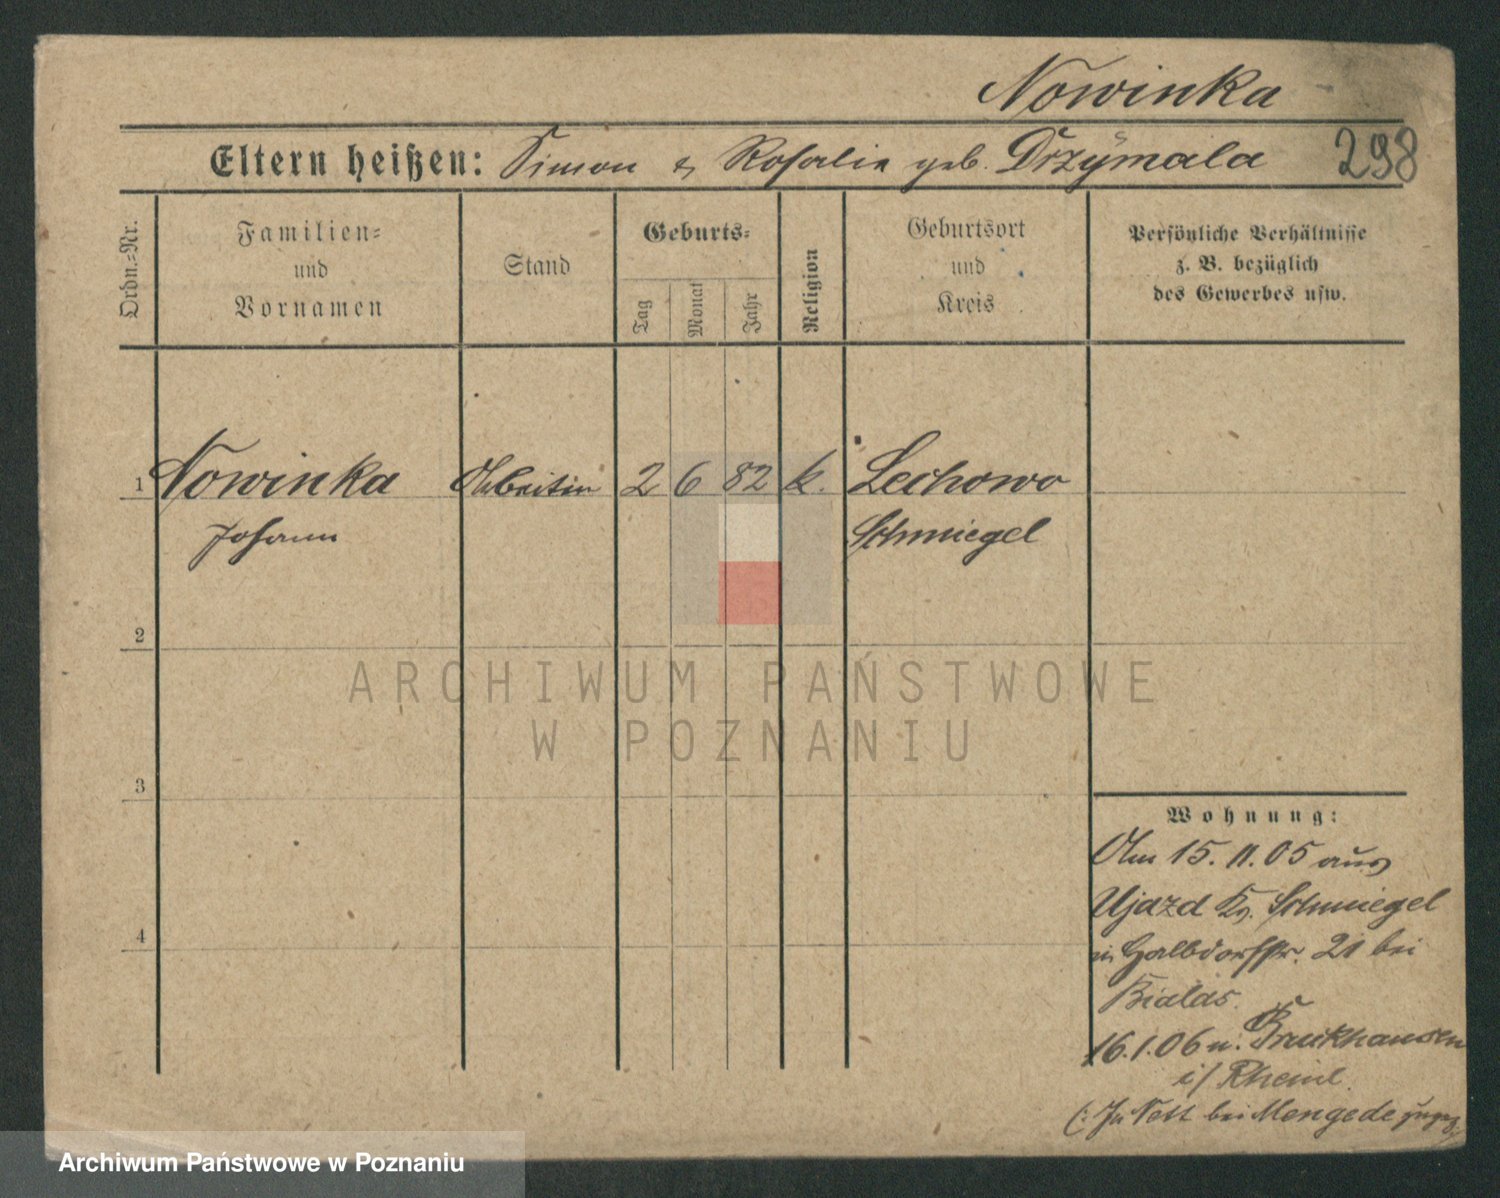 Nowinka
Eltern heißen: Simon & Rosalie geb. Drzymala 298
Ordn.-Nr.
Familien-
und
Vornamen
Stand
Geburts-
Tag
Monat
Jahr
Religion
Geburtsort
und
Kreis
Persönliche Verhältnisse
z. B. bezüglich
des Gewerbes usw.
1 Nowinka 2 6 82 k. Lechowo
Johann Schmiegel
2
3
4
ARCHIWUM PAŃSTWOWE
W POZNANIU
Wohnung:
Am 15. 11. 05 aus
Ujazd Kr. Schmiegel
n. Halbdorfstr. 21 bei
Bialas.
16.1.06 n. Bruckhausen
i/ Rheinl.
(: In Nett bei Mengede
Archiwum Państwowe w Poznaniu